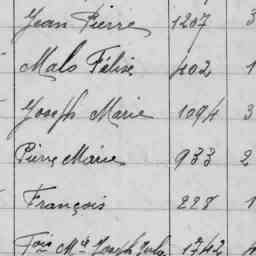 Jean Pierre 1207 3
Malo Félix 402 1
Joseph Marie 1094 3
Pierre Marie 933 2
François 228 1
Fois Mie Joseph 1742